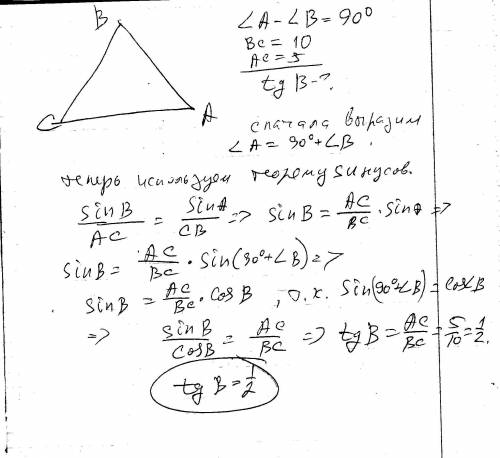 B
C
A
∠A - ∠B = 90°
BC = 10
AC = 5
tg B - ?
сначала выразим
∠A = 90° + ∠B.
теперь используем теорему sинусов.
sin B / AC = sin A / CB => sin B = AC / BC · sin A =>
sin B = AC / BC · sin(90° + ∠B) =>
sin B = AC / BC · cos B, т.к. sin(90°+∠B) = cos∠B
=> sin B / cos B = AC / BC => tg B = AC / BC = 5 / 10 = 1 / 2.
tg B = 1 / 2